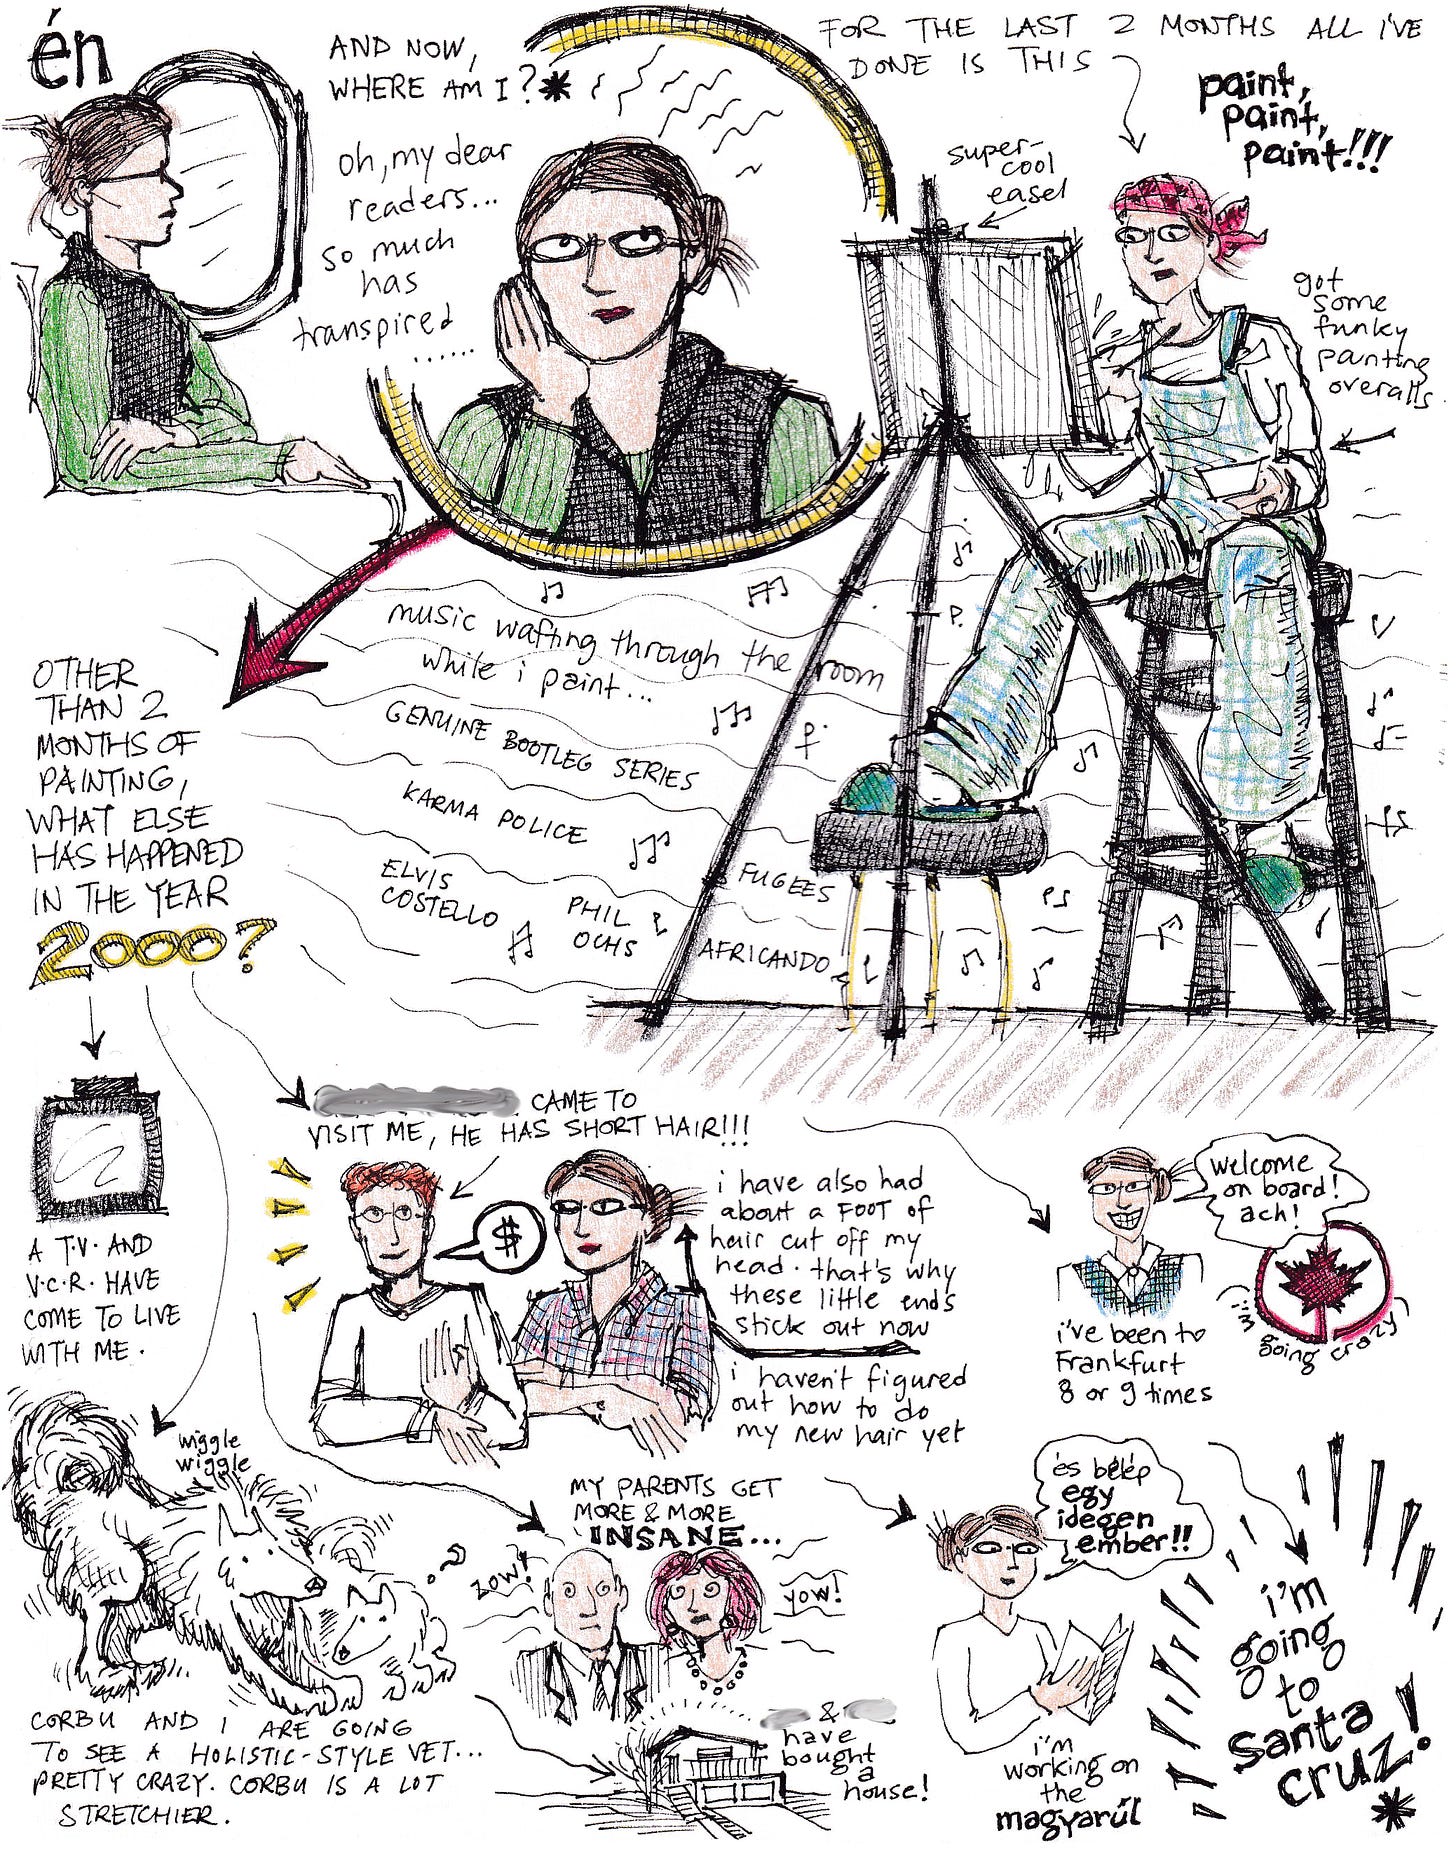 én
AND NOW,
WHERE AM I?*
oh, my dear
readers...
so much
has
transpired
......
FOR THE LAST 2 MONTHS ALL I'VE
DONE IS THIS
paint,
paint,
paint!!!
super-
cool
easel
got
some
funky
painting
overalls
music wafting through the room
while i paint...
GENUINE BOOTLEG SERIES
KARMA POLICE
ELVIS
COSTELLO
PHIL
OCHS
FUGEES
AFRICANDO
OTHER
THAN 2
MONTHS OF
PAINTING,
WHAT ELSE
HAS HAPPENED
IN THE YEAR
2000?
A T.V. AND
V.C.R. HAVE
COME TO LIVE
WITH ME.
CAME TO
VISIT ME, HE HAS SHORT HAIR!!!
$
i have also had
about a FOOT of
hair cut off my
head. that's why
these little ends
stick out now
i haven't figured
out how to do
my new hair yet
welcome
on board!
ach!
i'm going crazy
i've been to
Frankfurt
8 or 9 times
wiggle
wiggle
CORBU AND I ARE GOING
TO SEE A HOLISTIC-STYLE VET...
PRETTY CRAZY. CORBU IS A LOT
STRETCHIER.
MY PARENTS GET
MORE & MORE
INSANE...
zow!
yow!
&
have
bought
a
house!
és belép
egy
idegen
ember!!
i'm
working on
the
magyarúl
i'm
going
to
santa
cruz!
*